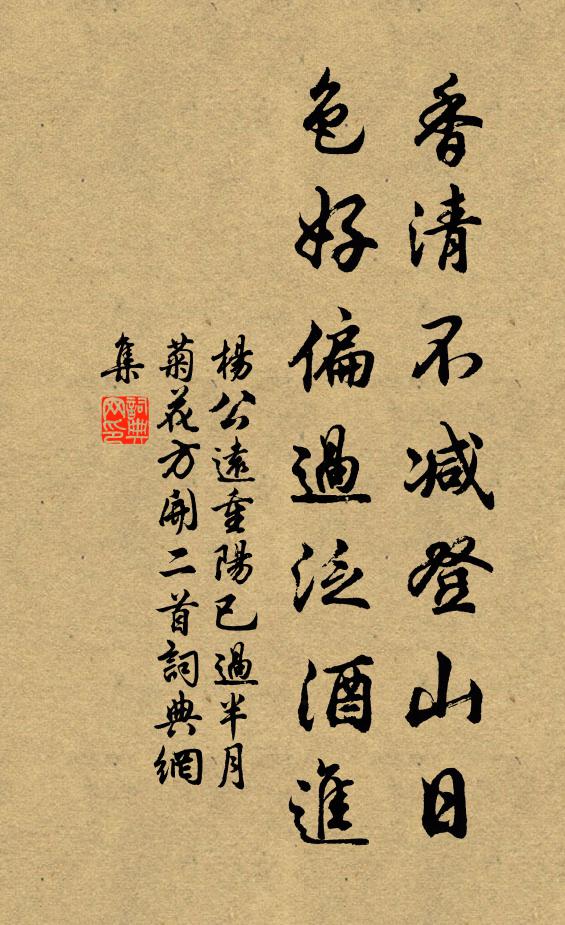 香清不減登山日
色好偏過泛酒進
楊公遠重陽已過半月
菊花方開二首詞典網
集
詞典
网印